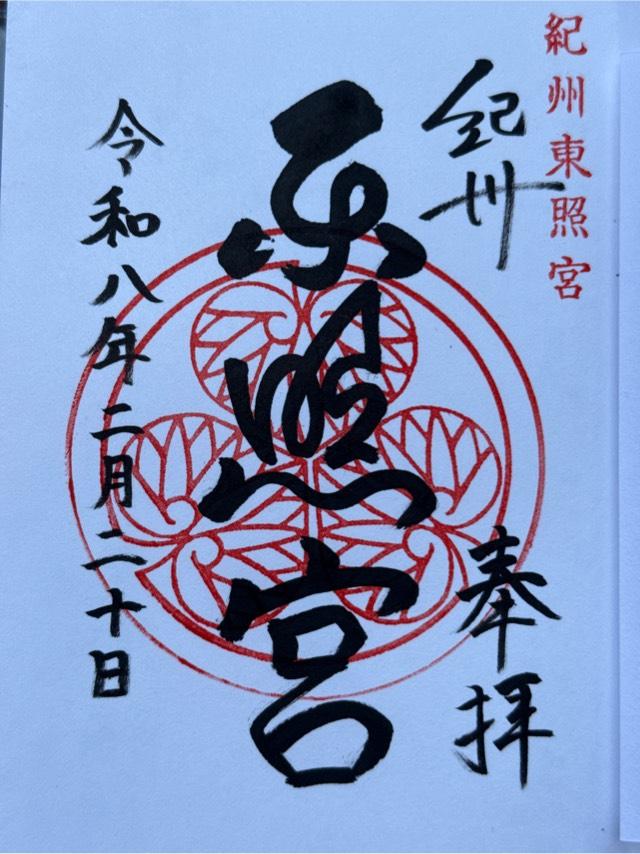 紀州東照宮
紀州
奉拝
東照宮
令和八年二月二十日